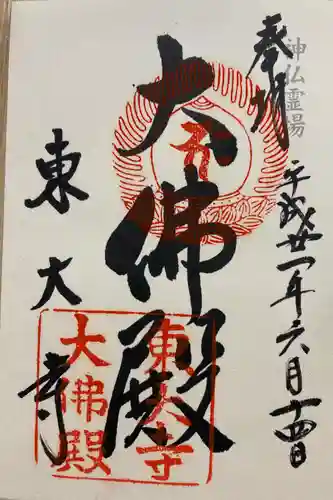 奉拝
神仏霊場
平成廿一年六月十四日
大佛殿
東大寺
東大寺
大佛殿